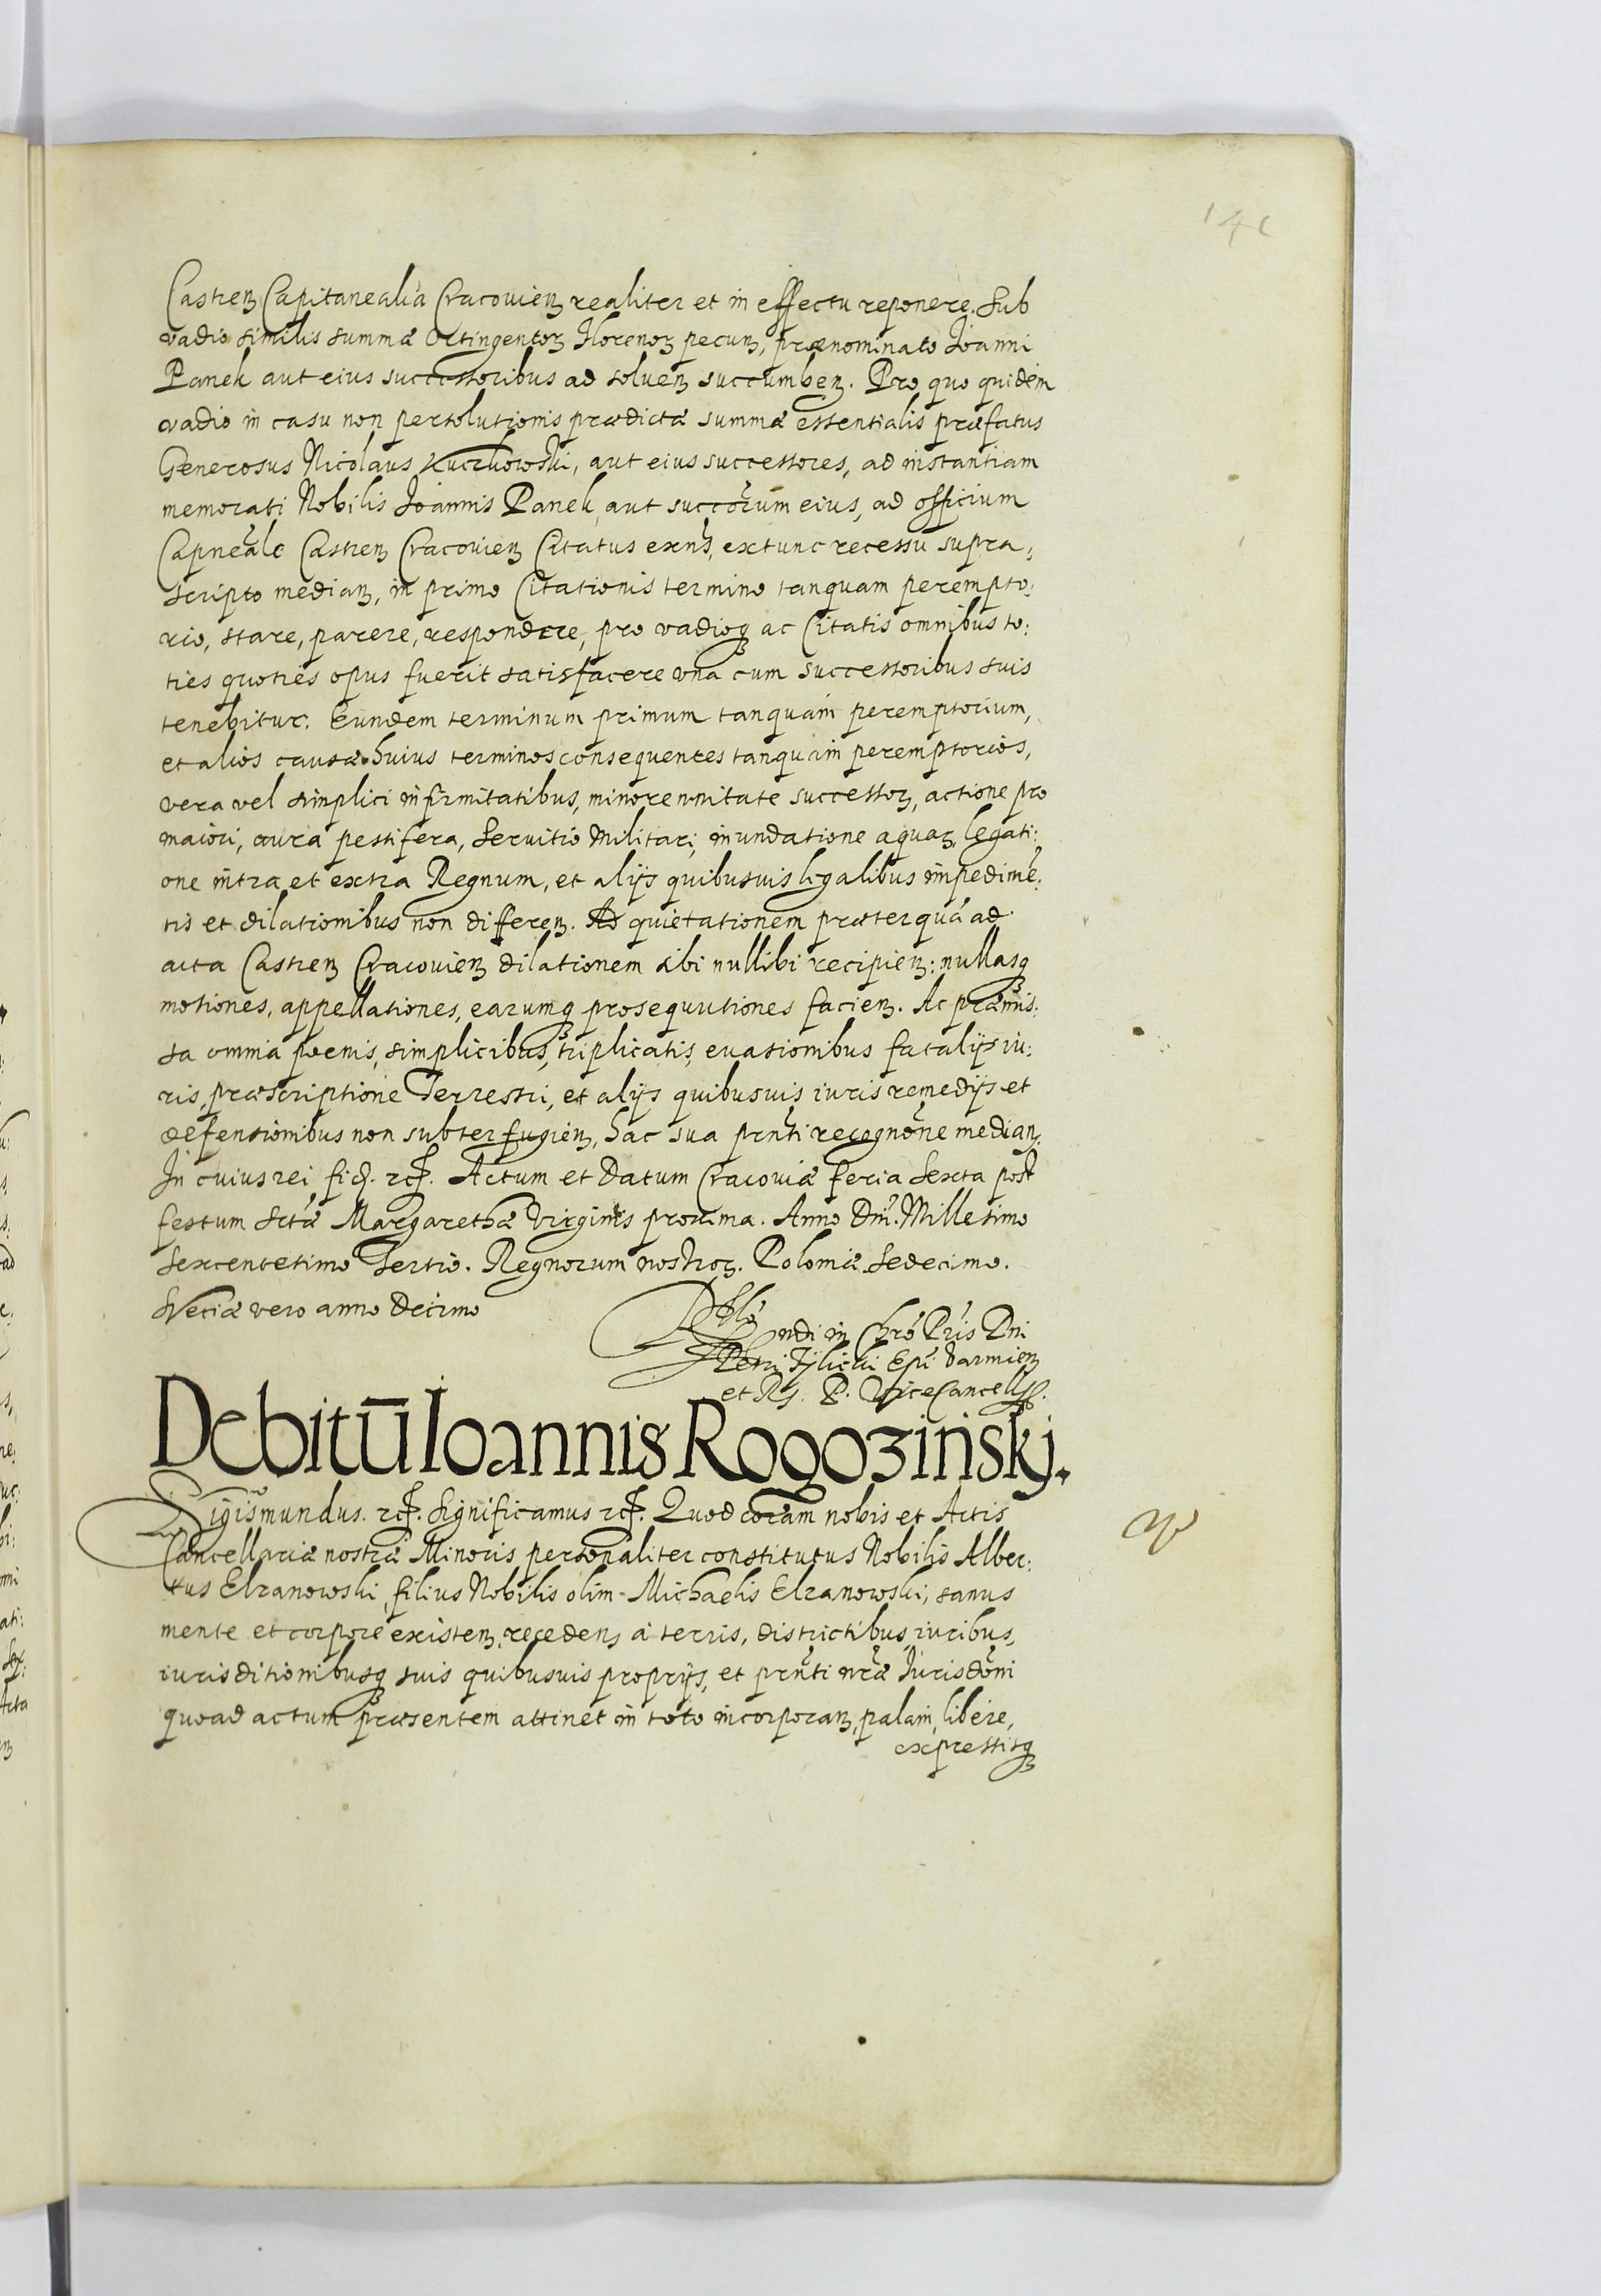 141
Castren Capitanealia Cracovien realiter et in effectu reponere. Sub
vadio similis summæ Octingentoꝝ florenoꝝ pecun, prænominato Joanni
Panek aut eius successoribus ad soluen succumben. Pro quo quidem
vadio in casu non persolutionis prædictæ summæ essentialis præfatus
Generosus Nicolaus Kuczkowski, aut eius successores, ad instantiam
memorati Nobilis Joannis Panek, aut succorum eius, ad officium
Capneale Castren Cracovien Citatus exns, extunc recessu supra,
scripto median, in primo Citationis termino tanquam perempto:
rio, stare, parere, respondere, pro vadioqꝫ ac Citatis omnibus to:
ties quoties opus fuerit satisfacere una cum successoribus suis
tenebitur. Eundem terminum primum tanquam peremptorium,
et alios causæ huius terminos consequentes tanquam peremptorios,
vera vel simplici infirmitatibus, minorennitate successoꝝ, actione pro
maiori, aura pestifera, Servitio Militari, inundatione aquaꝝ, legati:
one intra et extra Regnum, et alijs quibusuis legalibus impedimē:
tis et dilationibus non differen. Ad quietationem præterquā ad
acta Castren Cracovien dilationem sibi nullibi recipien: nullasqꝫ
motiones, appellationes, earumqꝫ prosequutiones facien. Ac præmis:
sa omnia pœnis, simplicibus, triplicatis, euasionibus fatalijs iu:
ris, præscriptione Terrestri, et alijs quibusuis iuris remedijs et
defensionibus non subterfugien, hac sua prnti recognone median.
In cuius rei fid. rcꝭ. Actum et Datum Cracoviæ feria Sexta post
festum sctæ Margarethæ Virginis proxima. Anno Dni. Millesimo
Sexcentesimo Tertio. Regnorum nostroꝝ. Poloniæ Sedecimo.
Sveciæ vero anno Decimo
ndi in Chrō Pris Dni
Petri Tylicki Epi Varmien
et R. P. ViceCancellꝭ.
Debitū Ioannis Rogozinskj.
Sigismundus. rcꝭ. Significamus rcꝭ. Quod coram nobis et Actis
Cancellariæ nostræ Minoris personaliter constitutus Nobilis Alber:
tus Elzanowski, filius Nobilis olim Michaelis Elzanowski, sanus
mente et corpore existen, recedens a terris, districtibus, iuribus,
iurisditionibusqꝫ suis quibusuis proprijs, et prnti nræ Jurisdōni
quoad actum præsentem attinet in toto incorporan, palam, libere,
expressisqꝫ